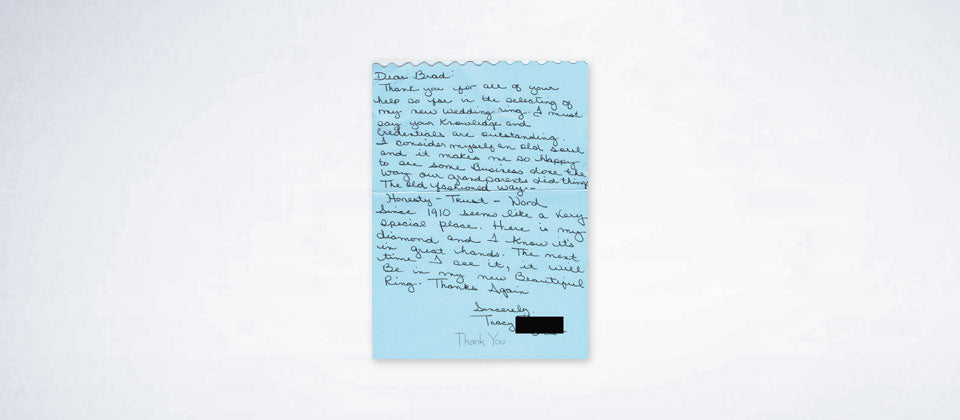 Dear Brad:
Thank you for all of your
help so far in the selecting of
my new wedding ring. I must
say your Knowledge and
Credentials are outstanding.
I consider myself an old soul
and it makes me so happy
to see some Business done the
way our grandparents did things
The old fashioned way.--
Honesty - Trust - Word
Since 1910 seems like a very
special place. Here is my
diamond and I know it's
in great hands. The next
time I see it, it will
Be in my new Beautiful
Ring. Thanks Again
Sincerely,
Tracy
Thank You